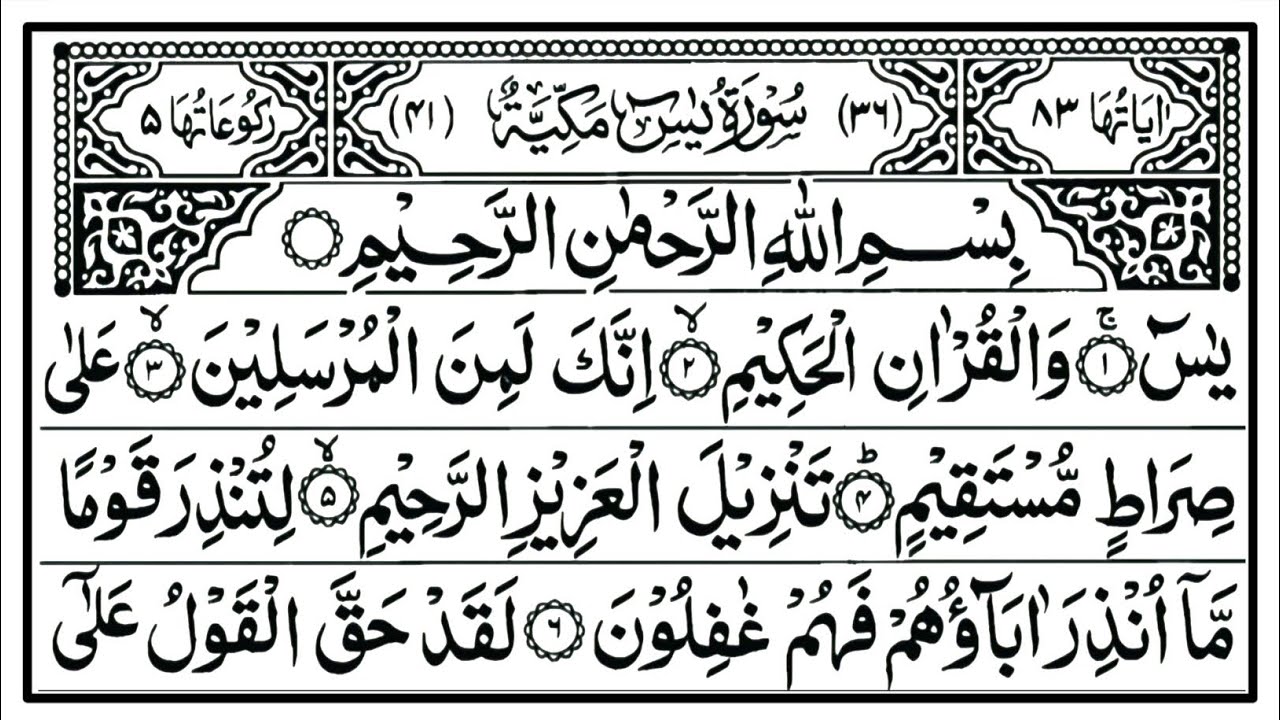 اٰیَاتُهَا ٨٣ (٣٦) سُوْرَةُ یٰسٓ مَكِّیَّةٌ (٤١) رُكُوْعَاتُهَا ٥
بِسْمِ اللّٰهِ الرَّحْمٰنِ الرَّحِیْمِ
یٰسٓ ۚ﴿١﴾ وَالْقُرْاٰنِ الْحَكِیْمِ ۙ﴿٢﴾ اِنَّكَ لَمِنَ الْمُرْسَلِیْنَ ۙ﴿٣﴾ عَلٰی
صِرَاطٍ مُّسْتَقِیْمٍ ؕ﴿۴﴾ تَنْزِیْلَ الْعَزِیْزِ الرَّحِیْمِ ۙ﴿۵﴾ لِتُنْذِرَ قَوْمًا
مَّاۤ اُنْذِرَ اٰبَآؤُهُمْ فَهُمْ غٰفِلُوْنَ ﴿۶﴾ لَقَدْ حَقَّ الْقَوْلُ عَلٰۤی